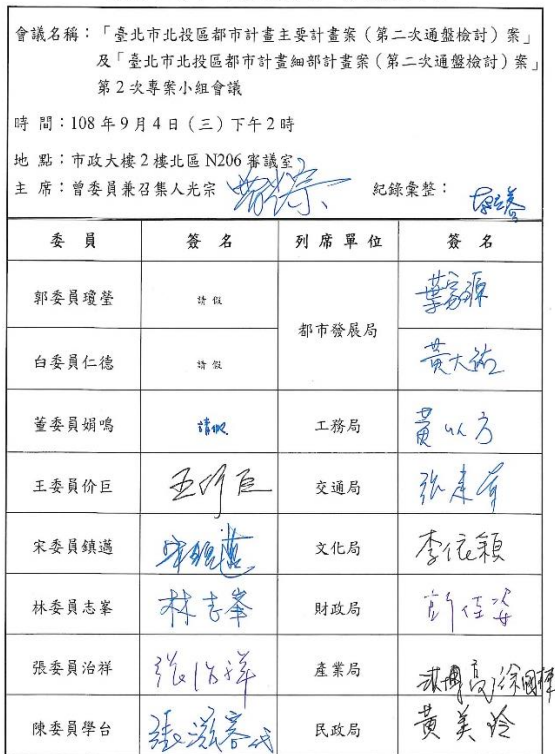 會議名稱：「臺北市北投區都市計畫主要計畫案（第二次通盤檢討）案」
及「臺北市北投區都市計畫細部計畫案（第二次通盤檢討）案」
第2次專案小組會議
時 間：108年9月4日（三）下午2時
地 點：市政大樓2樓北區N206審議室
主 席：曾委員兼召集人光宗 曾光宗 紀錄彙整：
委 員 簽 名 列 席 單 位 簽 名
郭委員瓊瑩 請假 都市發展局 葉家源
白委員仁德 請假 黃大祐
董委員娟鳴 請假 工務局 黃以方
王委員价巨 王价巨 交通局
宋委員鎮邁 宋鎮邁 文化局 李依穎
林委員志峯 林志峯 財政局
張委員治祥 張治祥 產業局
陳委員學台 張滋容代 民政局 黃美玲